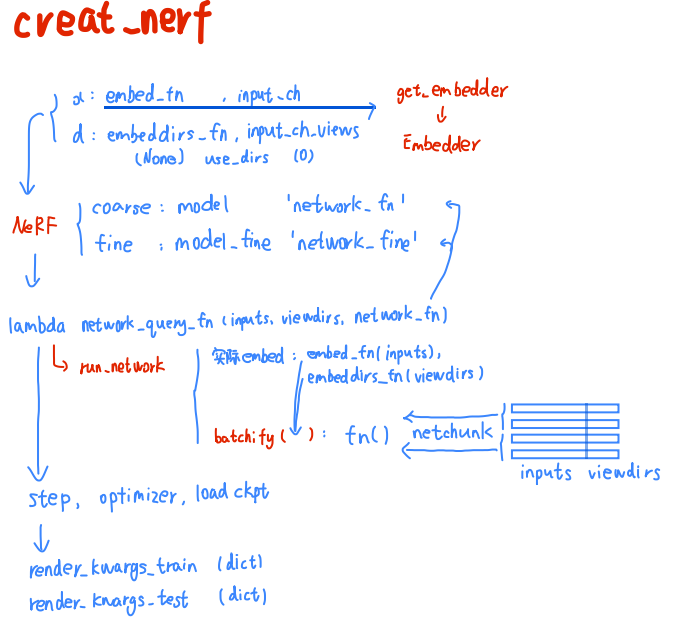 creat_nerf
x: embed_fn , input_ch
get_embedder
d: embeddirs_fn, input_ch_views
Embedder
(None) use_dirs (0)
NeRF
coarse : model 'network_fn'
fine : model_fine 'network_fine'
lambda network_query_fn (inputs, viewdirs, network_fn)
run_network
实际embed : embed_fn(inputs),
embeddirs_fn(viewdirs)
batchify( ): fn() netchunk
inputs viewdirs
step, optimizer, load ckpt
render_kwargs_train (dict)
render_kwargs_test (dict)